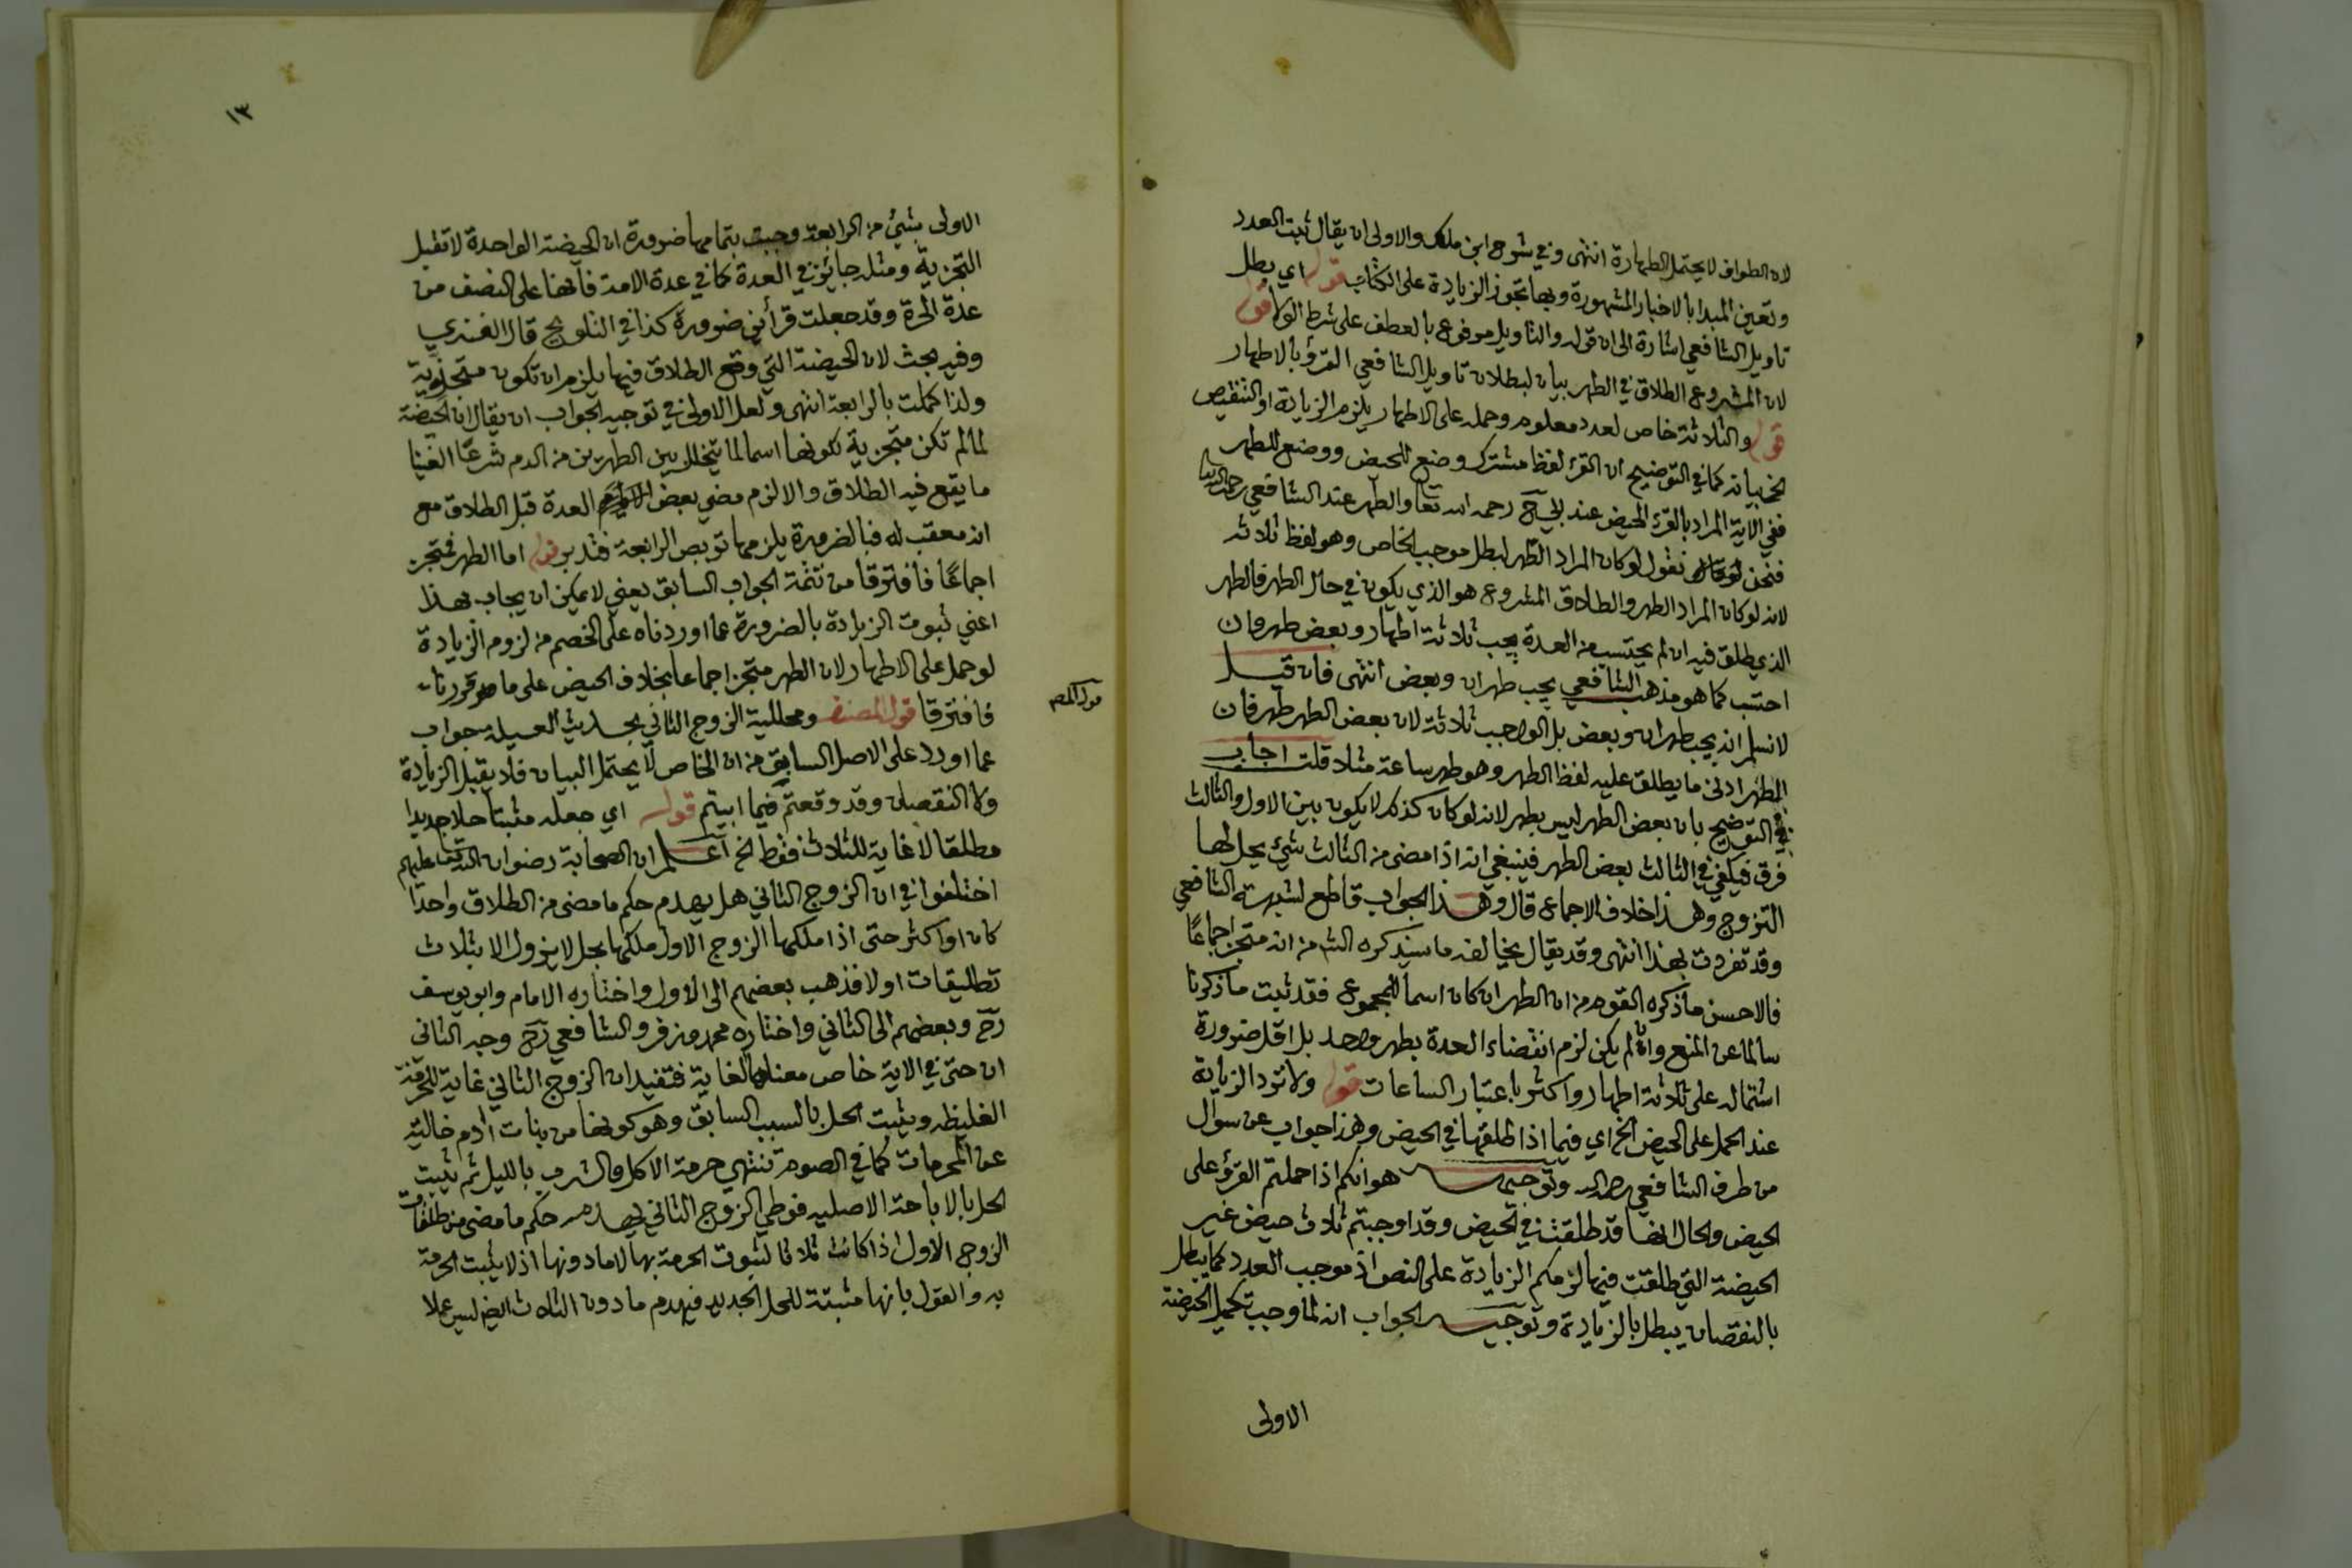 لان الطواف لا يحتمل الطهارة انتهى وفي شرح ابن ملك والاولى ان يقال ثبت العدد
وتعين المبدا بالاخبار المشهورة وبها تجوز الزيادة على الكتاب قوله اي بطل
تاويل الشافعي اشارة الى ان قوله والتاويل مرفوع بالعطف على شرط الولا قوله
لان المشروع الطلاق في الطهر بيان لبطلان تاويل الشافعي القرؤ بالاطهار
قوله والثلاثة خاص لعدد معلوم وحمله على الاطهار يلزم الزيادة او التنقيص
الخ بيانه كما في التوضيح ان القرء لفظ مشترك وضع للحيض ووضع للطهر
ففي الآية المراد بالقرء الحيض عند ابي ح رحمه الله تعا والطهر عند الشافعي رحمه الله تعا
فنحن نقول لو كان المراد الطهر لبطل موجب الخاص وهو لفظ ثلاثة
لانه لو كان المراد الطهر والطلاق المشروع هو الذي يكون في حال الطهر فالطهر
الذي طلق فيه ان لم يحتسب من العدة يجب ثلاثة اطهار وبعض طهر وان
احتسب كما هو مذهب الشافعي يجب طهران وبعض انتهى فان قيل
لا نسلم انه يجب طهران وبعض بل الواجب ثلاثة لان بعض الطهر طهر فان
الطهر ادنى ما يطلق عليه لفظ الطهر وهو طهر ساعة مثلا قلت اجاب
في التوضيح بان بعض الطهر ليس بطهر لانه لو كان كذلك لا يكون بين الاول والثالث
فرق فيكفي في الثالث بعض الطهر فينبغي انه اذا مضى من الثالث شيئ يحل لها
التزوج وهذا خلاف الاجماع قال وهذا الجواب قاطع لشبهة الشافعي
وقد تفردت بهذا انتهى وقد يقال يخالفه ما سيذكره الش من انه متجز اجماعًا
فالاحسن ما ذكره القوم من ان الطهر ان كان اسما للمجموع فقد ثبت ما ذكرنا
سالما عن المنع وان لم يكن لزم انقضاء العدة بطهر واحد بل اقل ضرورة
اشتماله على ثلاثة اطهار واكثر باعتبار الساعات قوله ولا تزد الزيادة
عند الحمل على الحيض الخ اي فيما اذا طلقها في الحيض وهذا جواب عن سوال
من طرف الشافعي رحمه الله وتوجيهه هو انكم اذا حملتم القرؤ على
الحيض والحال انها قد طلقت في الحيض وقد اوجبتم ثلاث حيض غير
الحيضة التي طلقت فيها لزمكم الزيادة على النص اذ موجب العدد كما يبطل
بالنقصان يبطل بالزيادة وتوجيه الجواب انه لما وجب تكميل الحيضة
الاولى
١٣
الاولى بشيئ من الرابعة وجبت بتمامها ضرورة ان الحيضة الواحدة لا تقبل
التجزية ومثله جائز في العدة كما في عدة الامة فانها على النصف من
عدة الحرة وقد جعلت قرأين ضرورة كذا في التلويح قال الفنري
وفيه بحث لان الحيضة التي وقع الطلاق فيها يلزم ان تكون متجزية
ولذا كملت بالرابعة انتهى ولعل الاولى في توجيه الجواب ان يقال ان الحيضة
لما لم تكن متجزية لكونها اسما لما يتخلل بين الطهرين من الدم شرعًا الغينا
ما يقع فيه الطلاق والا لزم مضي بعض العدة قبل الطلاق مع
انه معقب له فبالضرورة يلزمها تربص الرابعة فتدبر قوله اما الطهر فمتجز
اجماعًا فافترقا من تتمة الجواب السابق يعني لا يمكن ان يجاب بهذا
اعني ثبوت الزيادة بالضرورة عما اوردناه على الخصم من لزوم الزيادة
لو حمل على الاطهار لان الطهر متجز اجماعا بخلاف الحيض على ما قررنا
فافترقا قول المصنف ومحللية الزوج الثاني بحديث العسيلة جواب
عما اورد على الاصل السابق من ان الخاص لا يحتمل البيان فلا يقبل الزيادة
ولا النقصان وقد وقعتم فيما ابيتم قوله اي جعله مثبتا حلا جديدا
مطلقا لا غاية للثلاث فقط الخ اعلم ان الصحابة رضوان الله تعا عليهم
اختلفوا في ان الزوج الثاني هل يهدم حكم ما مضى من الطلاق واحدًا
كان او اكثر حتى اذا ملكها الزوج الاول ملكها بحل لا يزول الا بثلاث
تطليقات اولا فذهب بعضهم الى الاول واختاره الامام وابو يوسف
رح وبعضهم الى الثاني واختاره محمد وزفر والشافعي رح وجه الثاني
ان حتى في الاية خاص معناه الغاية فتفيد ان الزوج الثاني غاية للحرمة
الغليظه ويثبت الحل بالسبب السابق وهو كونها من بنات آدم خالية
عن المحرمات كما في الصوم تنتهي حرمة الاكل والشرب بالليل ثم يثبت
الحل بالاباحة الاصليه فوطي الزوج الثاني يهدم حكم ما مضى من طلقات
الزوج الاول اذا كانت ثلاثا لثبوت الحرمة بها لا ما دونها اذ لا يثبت الحرمة
به والقول بانها مثبتة للحل الجديد فيهدم ما دون الثلاث ايض ليس عملا